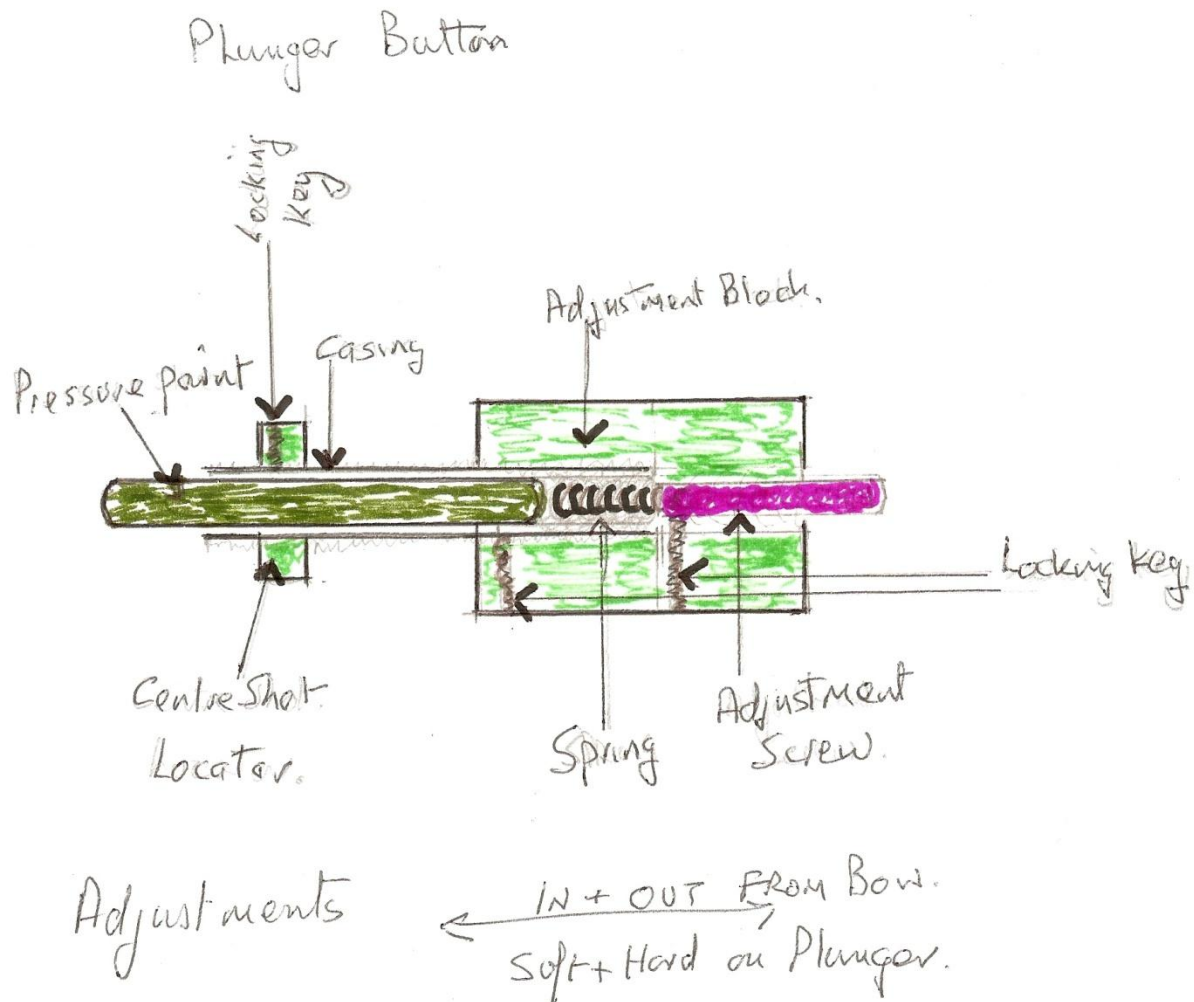 Plunger Button
Locking
Key
Adjustment Block.
Casing
Pressure point
Locking Key
Centre Shot
Locator.
Spring
Adjustment
Screw.
Adjustments
IN + OUT FROM BOW.
Soft + Hard on Plunger.